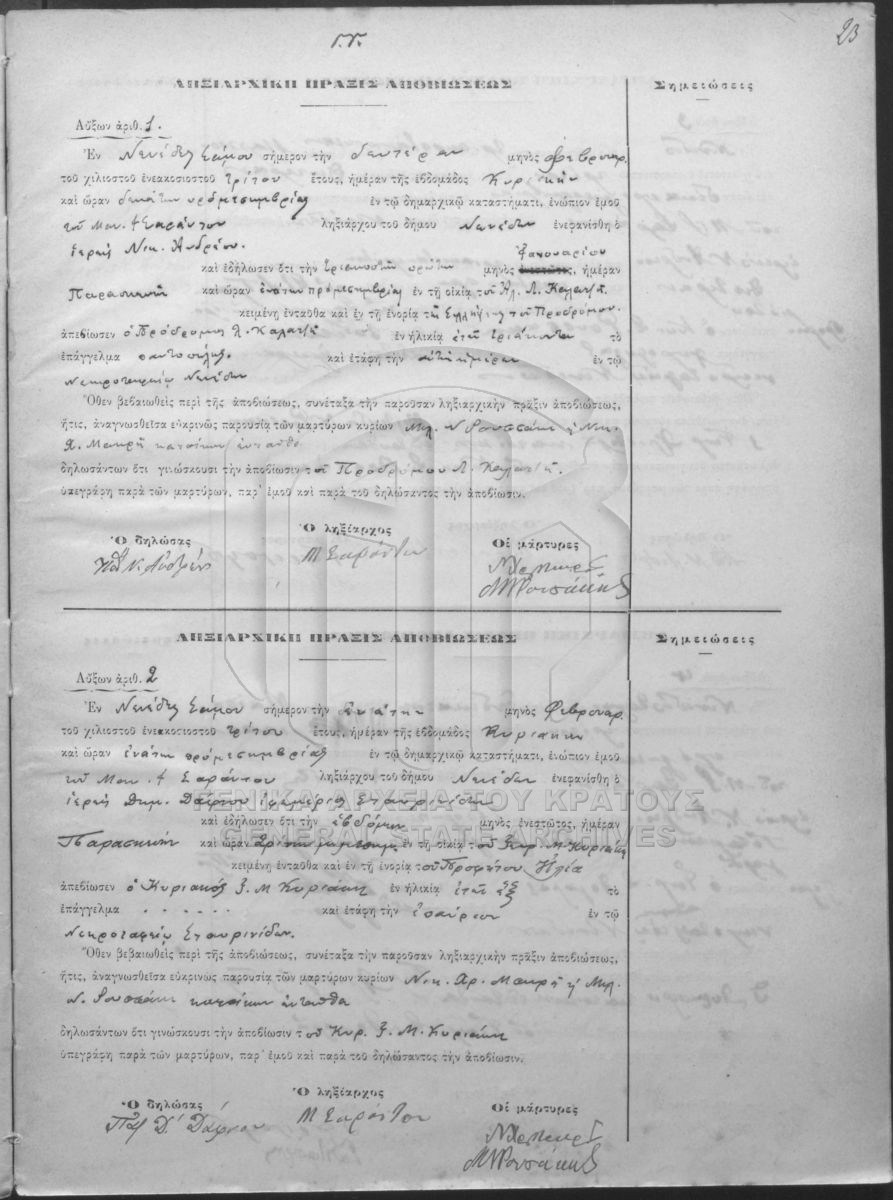 23
ΛΗΞΙΑΡΧΙΚΗ ΠΡΑΞΙΣ ΑΠΟΒΙΩΣΕΩΣ
Σημειώσεις
Αὔξων ἀριθ. 1.
Ἐν Νενέδες Σάμου σήμερον τὴν δευτέραν μηνὸς Φεβρουαρ.
τοῦ χιλιοστοῦ ἐνεακοσιοστοῦ τρίτου ἔτους, ἡμέραν τῆς ἑβδομάδος Κυριακὴν
καὶ ὥραν δεκάτην πρὸ μεσημβρίας ἐν τῷ δημαρχικῷ καταστήματι, ἐνώπιον ἐμοῦ
τοῦ Μαν. Σαράντου ληξιάρχου τοῦ δήμου Νενέδων ἐνεφανίσθη ὁ
ἱερεὺς Νικ. Ἀνδρέου.
Ἰανουαρίου
καὶ ἐδήλωσεν ὅτι τὴν τριακοστὴν πρώτην μηνὸς ἐνεστῶτος, ἡμέραν
Παρασκευὴν καὶ ὥραν ἐνάτην πρὸ μεσημβρίας ἐν τῇ οἰκίᾳ τοῦ Λ. Καλατζῆ
κειμένῃ ἐνταῦθα καὶ ἐν τῇ ἐνορίᾳ τοῦ Προδρόμου
ἀπεβίωσεν ὁ Πρόδρομος Λ. Καλατζῆ ἐν ἡλικίᾳ ἐτῶν τριάκοντα τὸ
ἐπάγγελμα παντοπώλης καὶ ἐτάφη τὴν αὐτὴν ἡμέραν ἐν τῷ
Νεκροταφείῳ Νενέδων
Ὅθεν βεβαιωθεὶς περὶ τῆς ἀποβιώσεως, συνέταξα τὴν παροῦσαν ληξιαρχικὴν πρᾶξιν ἀποβιώσεως,
ἥτις, ἀναγνωσθεῖσα εὐκρινῶς παρουσίᾳ τῶν μαρτύρων κυρίων Μιχ. Ν. Ρουσσάκη ἢ Νικ.
Χ. Μακρῆ κατοίκων ἐνταῦθα
δηλωσάντων ὅτι γινώσκουσι τὴν ἀποβίωσιν τοῦ Προδρόμου Λ. Καλατζῆ.
ὑπεγράφη παρὰ τῶν μαρτύρων, παρ' ἐμοῦ καὶ παρὰ τοῦ δηλώσαντος τὴν ἀποβίωσιν.
Ὁ δηλώσας
Ὁ ληξίαρχος
Οἱ μάρτυρες
Μ Σαράντου
ΛΗΞΙΑΡΧΙΚΗ ΠΡΑΞΙΣ ΑΠΟΒΙΩΣΕΩΣ
Σημειώσεις
Αὔξων ἀριθ. 2
Ἐν Νενέδες Σάμου σήμερον τὴν ἐνάτην μηνὸς Φεβρουαρ.
τοῦ χιλιοστοῦ ἐνεακοσιοστοῦ τρίτου ἔτους, ἡμέραν τῆς ἑβδομάδος Κυριακὴν
καὶ ὥραν ἐνάτην πρὸ μεσημβρίας ἐν τῷ δημαρχικῷ καταστήματι, ἐνώπιον ἐμοῦ
τοῦ Μαν. Σαράντου ληξιάρχου τοῦ δήμου Νενέδων ἐνεφανίσθη ὁ
ἱερεὺς Δημ. Δάφνου ἐφημέριος Σταυρινίδων
ΓΕΝΙΚΑ ΑΡΧΕΙΑ ΤΟΥ ΚΡΑΤΟΥΣ
καὶ ἐδήλωσεν ὅτι τὴν ἑβδόμην μηνὸς ἐνεστῶτος, ἡμέραν
GENERAL STATE ARCHIVES
Παρασκευὴν καὶ ὥραν ἐν τῇ οἰκίᾳ τοῦ Μ. Κυριάκη
κειμένῃ ἐνταῦθα καὶ ἐν τῇ ἐνορίᾳ τοῦ Προφήτου Ἠλία
ἀπεβίωσεν ὁ Κυριακὸς Ζ. Μ Κυριάκη ἐν ἡλικίᾳ ἐτῶν ἓξ τὸ
ἐπάγγελμα . . . . . . καὶ ἐτάφη τὴν ἐπαύριον ἐν τῷ
Νεκροταφείῳ Σταυρινίδων.
Ὅθεν βεβαιωθεὶς περὶ τῆς ἀποβιώσεως, συνέταξα τὴν παροῦσαν ληξιαρχικὴν πρᾶξιν ἀποβιώσεως,
ἥτις, ἀναγνωσθεῖσα εὐκρινῶς παρουσίᾳ τῶν μαρτύρων κυρίων Νικ. Χρ. Μακρῆ ἢ Μιχ.
Ν. Ρουσσάκη κατοίκων ἐνταῦθα
δηλωσάντων ὅτι γινώσκουσι τὴν ἀποβίωσιν τοῦ Κυρ. Ζ. Μ. Κυριάκη
ὑπεγράφη παρὰ τῶν μαρτύρων, παρ' ἐμοῦ καὶ παρὰ τοῦ δηλώσαντος τὴν ἀποβίωσιν.
Ὁ δηλώσας
Ὁ ληξίαρχος
Οἱ μάρτυρες
Δ. Δάφνου
Μ Σαράντου